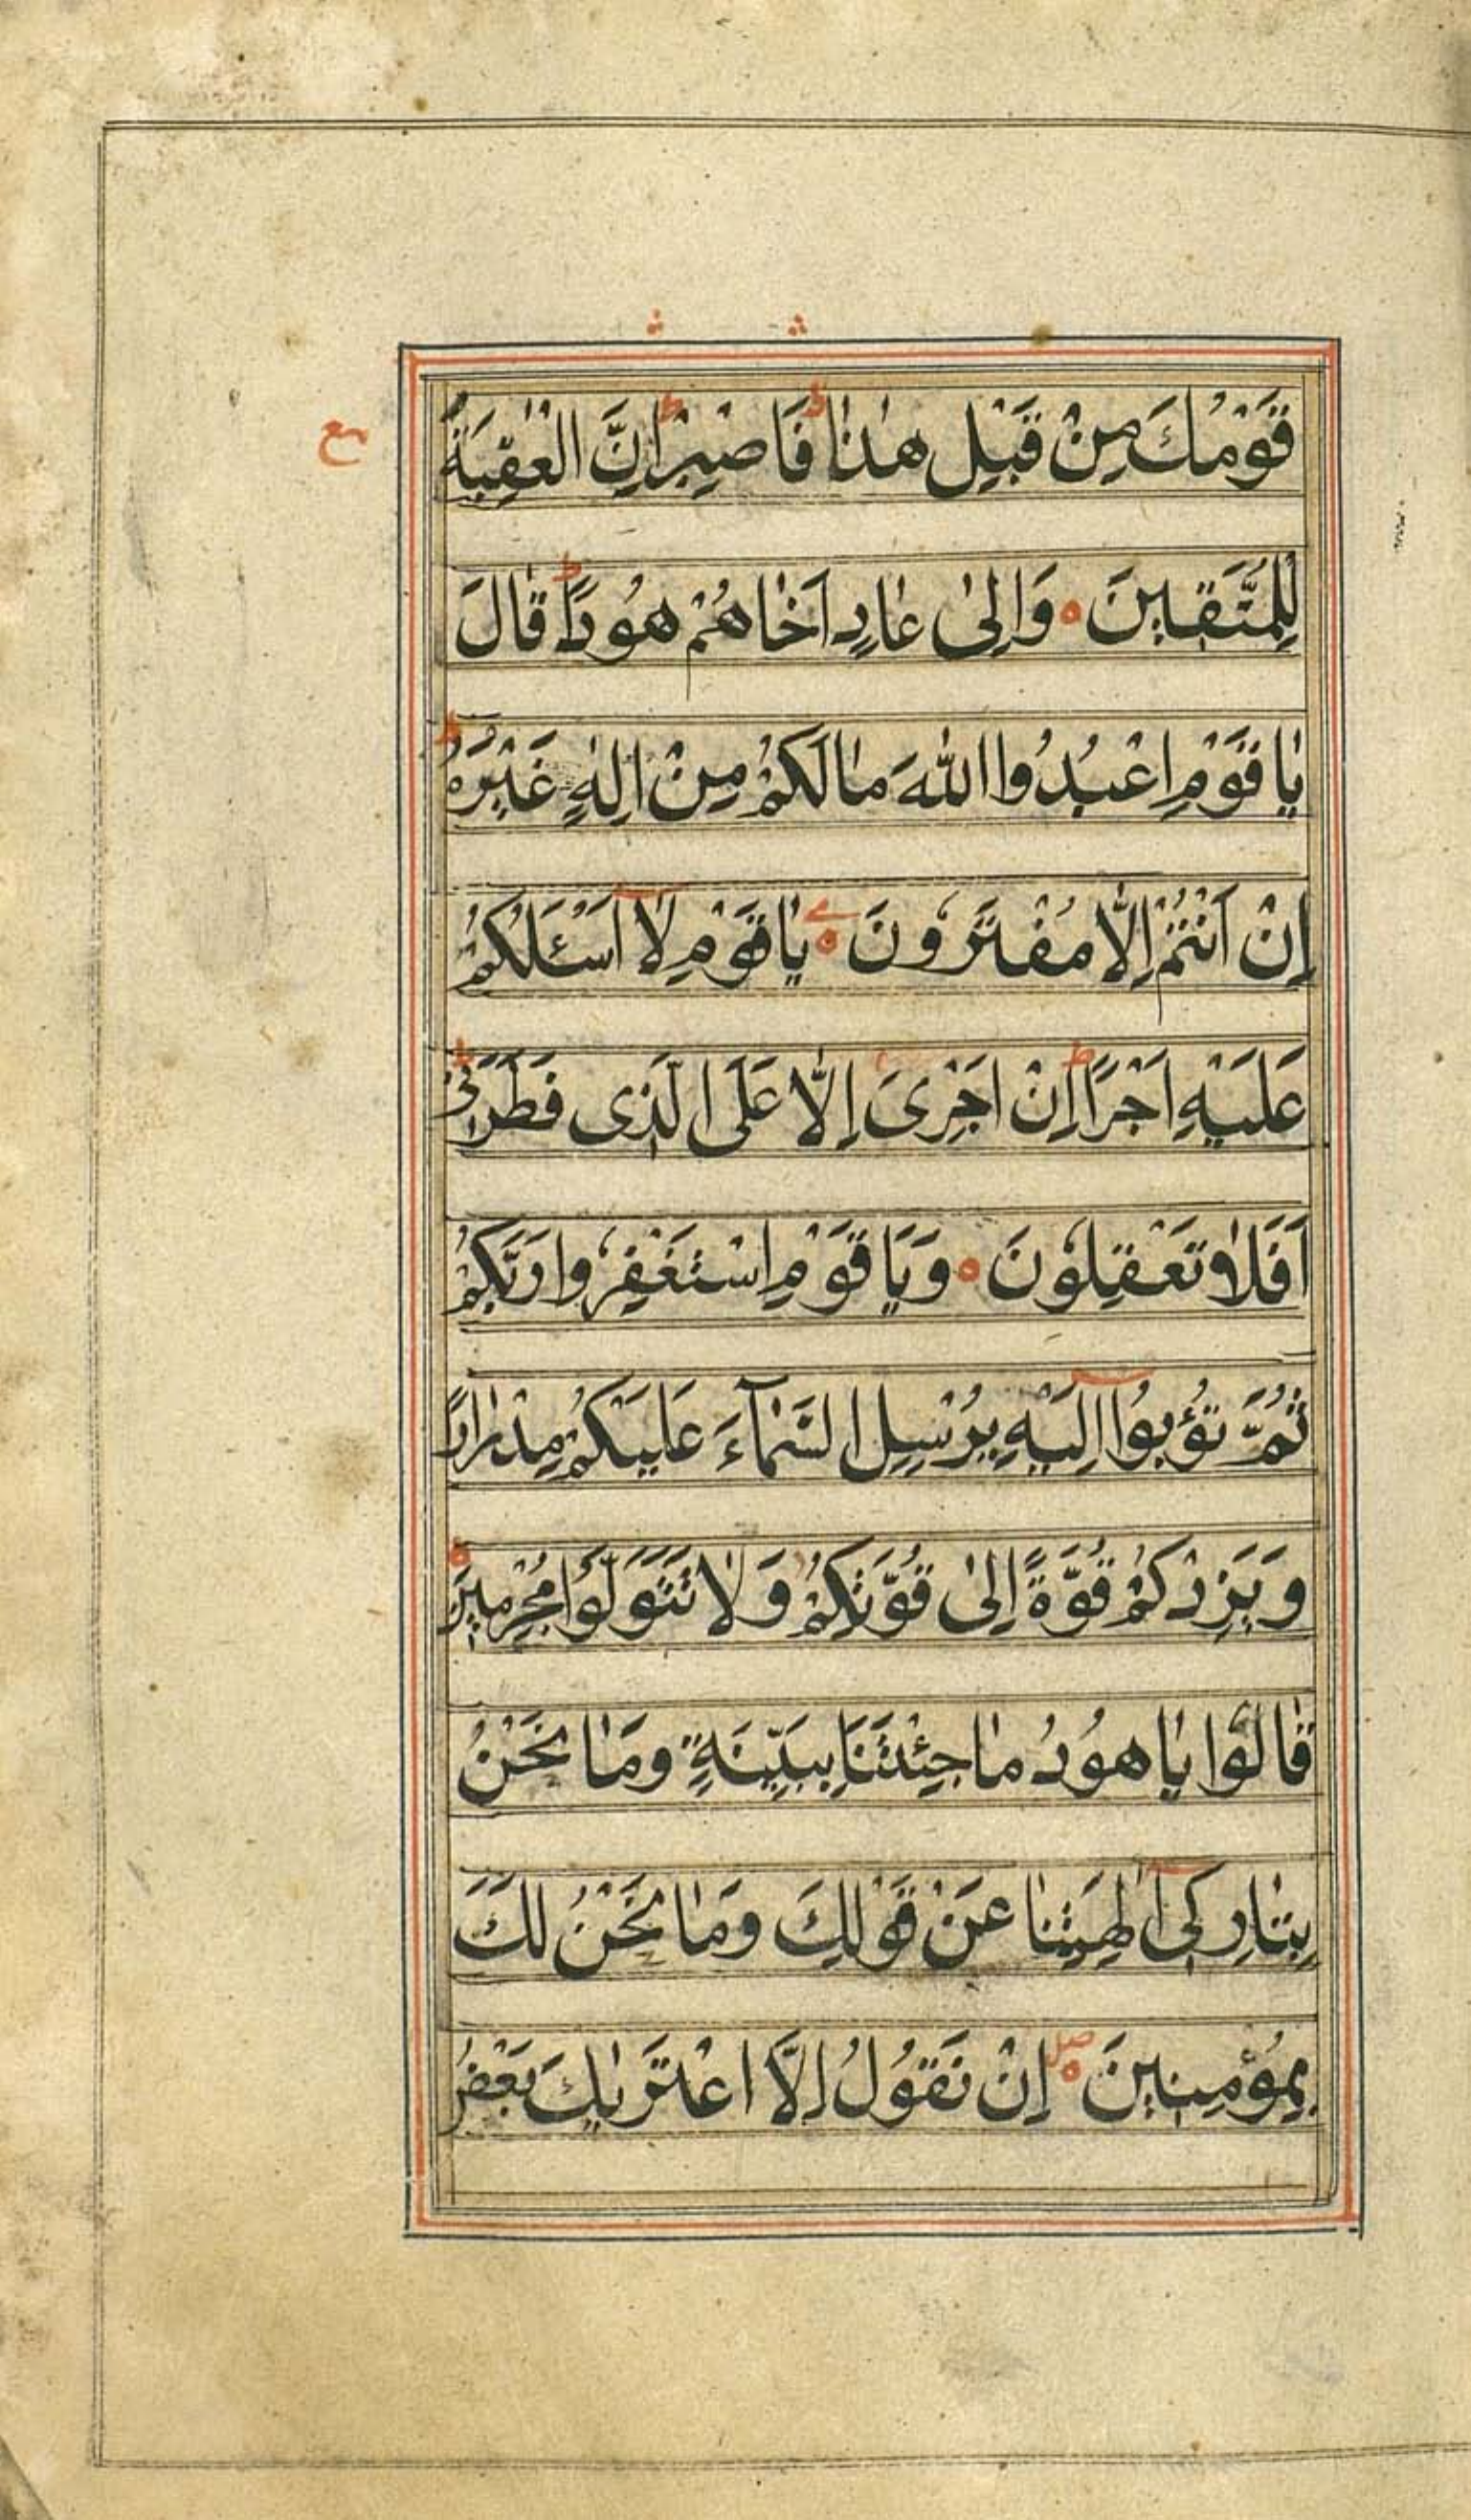 قَوْمُكَ مِنْ قَبْلِ هٰذٰا ط فَاصْبِرْ ط اِنَّ الْعٰقِبَةَ
لِلْمُتَّقينَ ه وَاِلىٰ عٰادٍ اَخٰاهُمْ هُودًا ط قٰالَ
يٰا قَوْمِ اعْبُدُوا اللّٰهَ مٰا لَكُمْ مِنْ اِلٰهٍ غَيْرُهُ ط
اِنْ اَنْتُمْ اِلّٰا مُفْتَرُونَ ه يٰا قَوْمِ لٰا اَسْئَلُكُمْ
عَلَيْهِ اَجْرًا ط اِنْ اَجْرِىَ اِلّٰا عَلَى الَّذى فَطَرَنى ط
اَفَلٰا تَعْقِلُونَ ه وَيَا قَوْمِ اسْتَغْفِرُوا رَبَّكُمْ
ثُمَّ تُوبُوا اِلَيْهِ يُرْسِلِ السَّمٰآءَ عَلَيْكُمْ مِدْرٰارًا
وَيَزِدْكُمْ قُوَّةً اِلىٰ قُوَّتِكُمْ وَلٰا تَتَوَلَّوْا مُجْرِمينَ ه
قٰالُوا يٰا هُودُ مٰا جِئْتَنَا بِبَيِّنَةٍ وَمٰا نَحْنُ
بِتٰارِكى اٰلِهَتِنٰا عَنْ قَوْلِكَ وَمٰا نَحْنُ لَكَ
بِمُؤْمِنينَ ه صلى اِنْ نَقُولُ اِلَّا اعْتَرٰيكَ بَعْضُ
مع